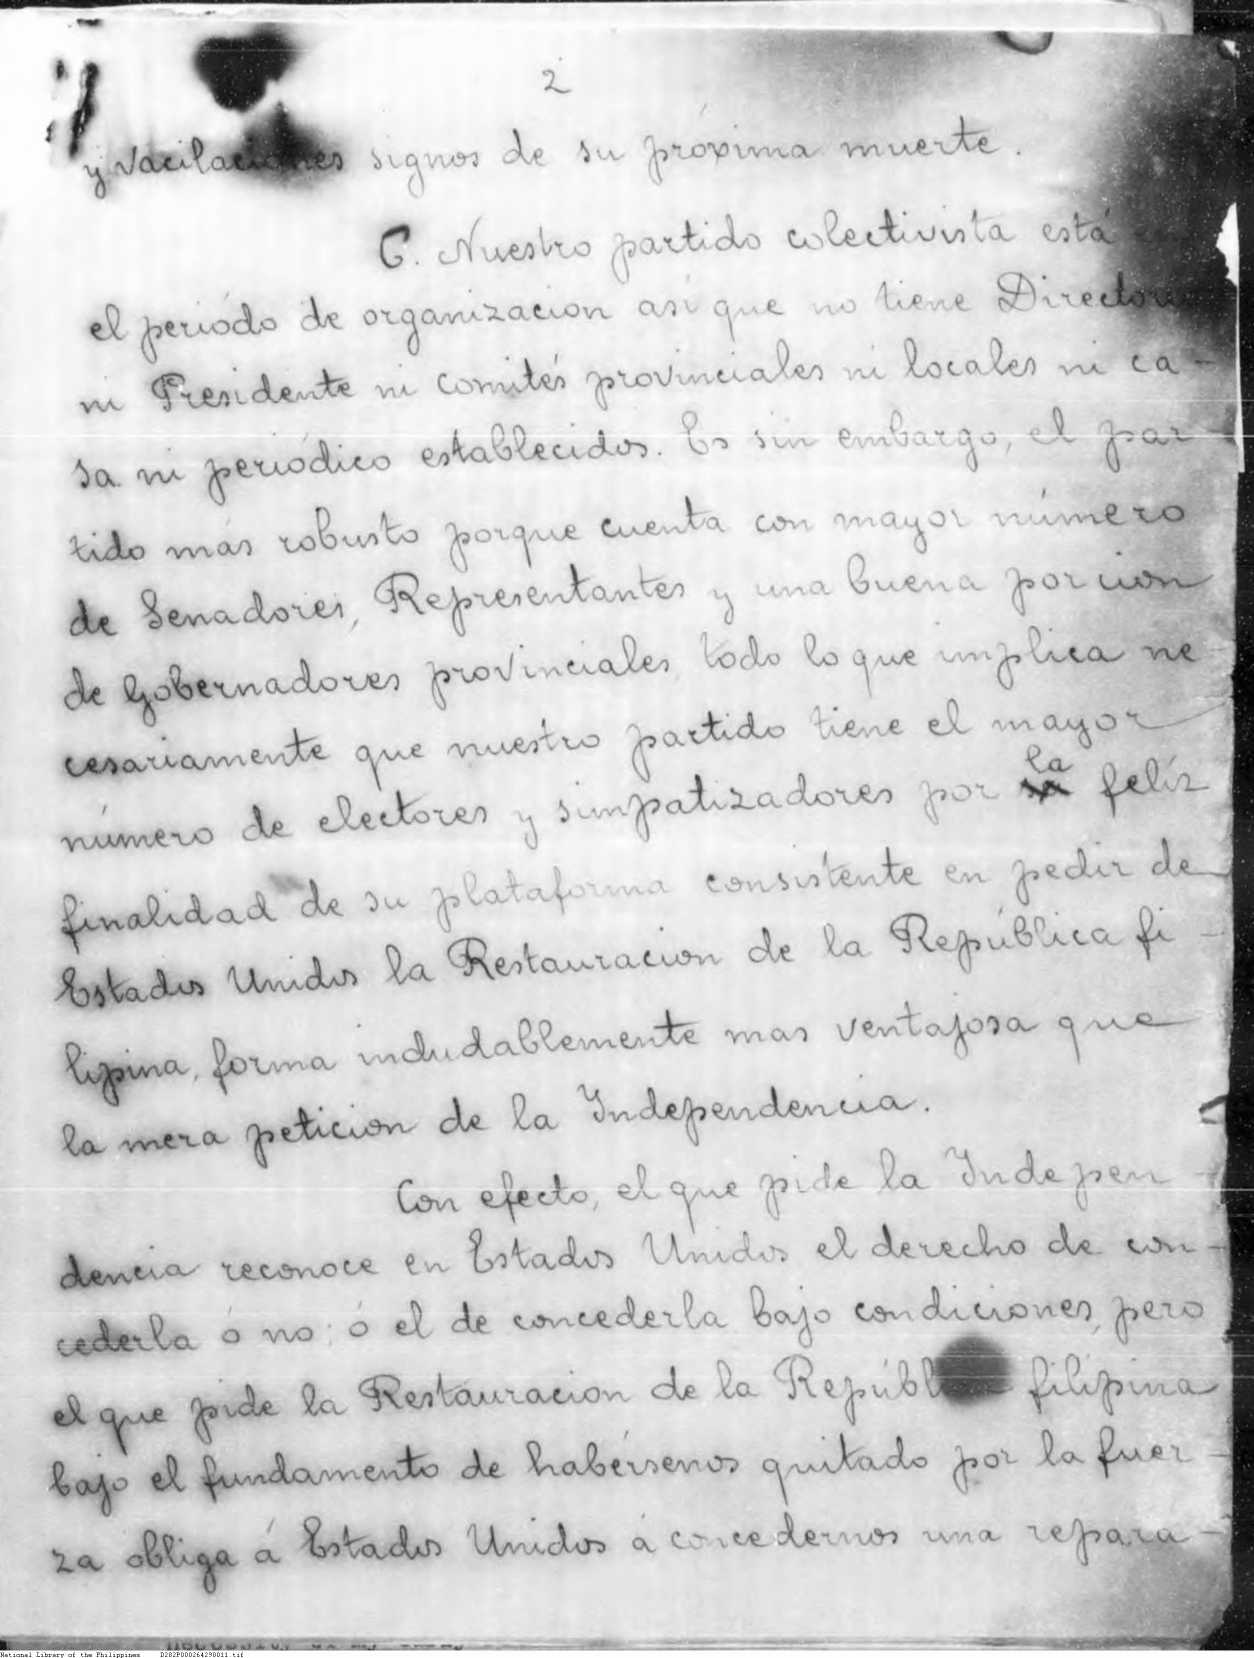 2
y vacilaciones signos de su próxima muerte.
C. Nuestro partido colectivista está
el periódo de organizacion asi que no tiene Directores
ni Presidente ni comités provinciales ni locales ni ca-
sa ni periódico establecidos. Es sin embargo, el par
tido más robusto porque cuenta con mayor número
de Senadores, Representantes y una buena porcion
de Gobernadores provinciales, todo lo que implica ne
cesariamente que nuestro partido tiene el mayor
número de electores y simpatizadores por la felíz
finalidad de su plataforma consistente en pedir de
Estados Unidos la Restauracion de la República fi-
lipina, forma indudablemente mas ventajosa que
la mera peticion de la Independencia.
Con efecto, el que pide la Indepen-
dencia reconoce en Estados Unidos el derecho de con-
cederla ó no; ó el de concederla bajo condiciones, pero
el que pide la Restauracion de la República filipina
bajo el fundamento de habérsenos quitado por la fuer-
za obliga á Estados Unidos á concedernos una repara-
National Library of the Philippines D282P000264298011.tif